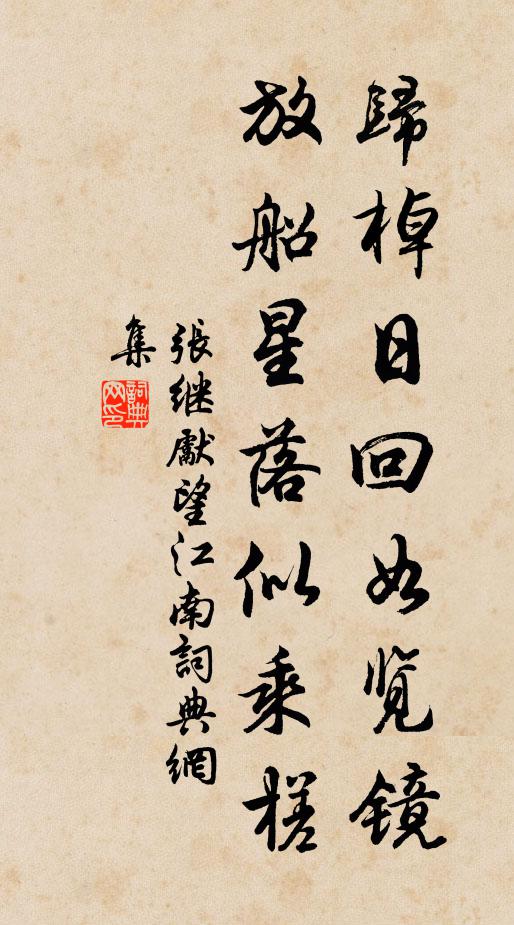 歸棹日回如览镜
放船星落似乘槎
張继獻望江南詞典網
集
詞典网印